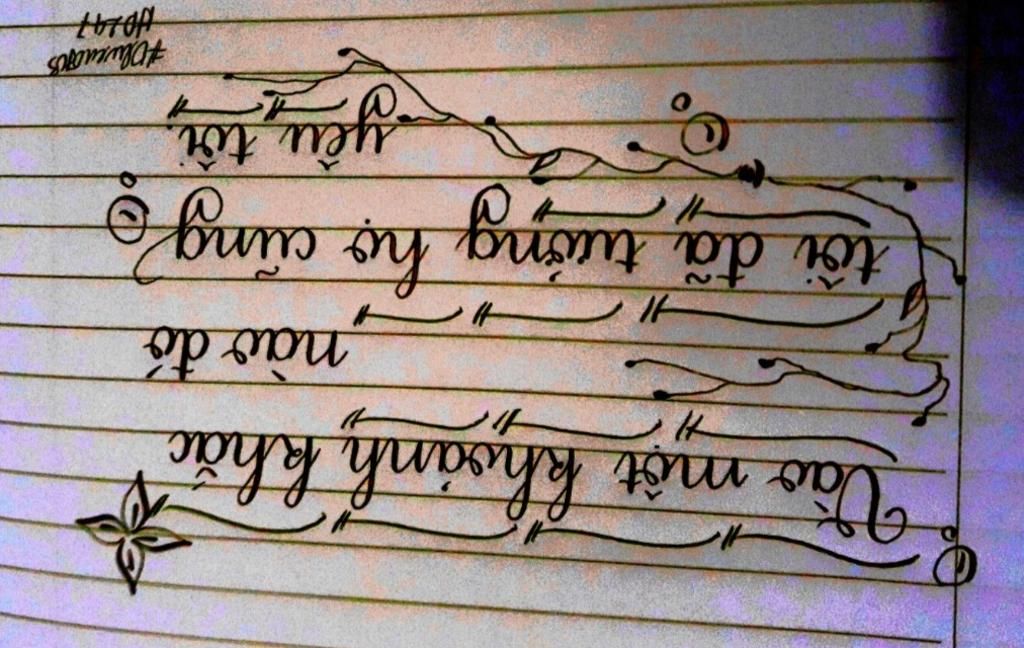 Vào một khoảnh khắc
nào đó
tôi đã tưởng họ cũng
yêu tôi.